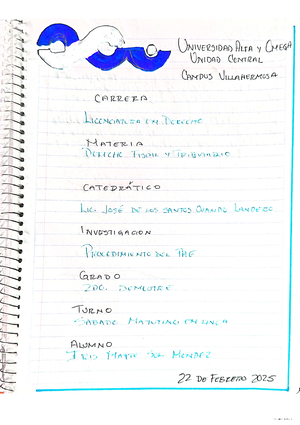 Universidad Alfa y Omega
Unidad Central
Campus Villahermosa
Carrera
Licenciatura en Derecho
Materia
Derecho Fiscal y Tributario
Catedrático
Lic. José de los Santos
Investigacion
Procedimiento del PAE
Grado
2do. Semestre
Turno
Sabado Matutino en linea
Alumno
Del Mendez
22 de Febrero 2025